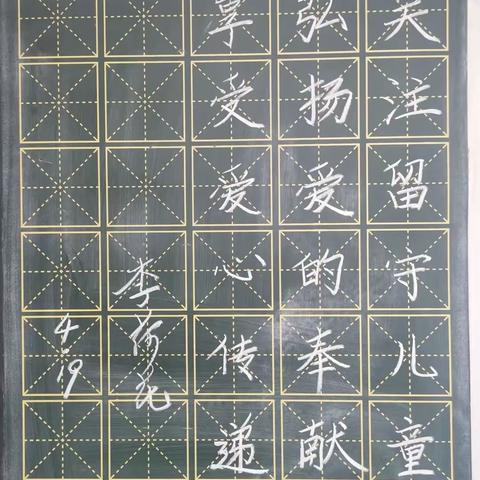 关注留守儿童
弘扬爱的奉献
享受爱心传递
李荷花
4.19